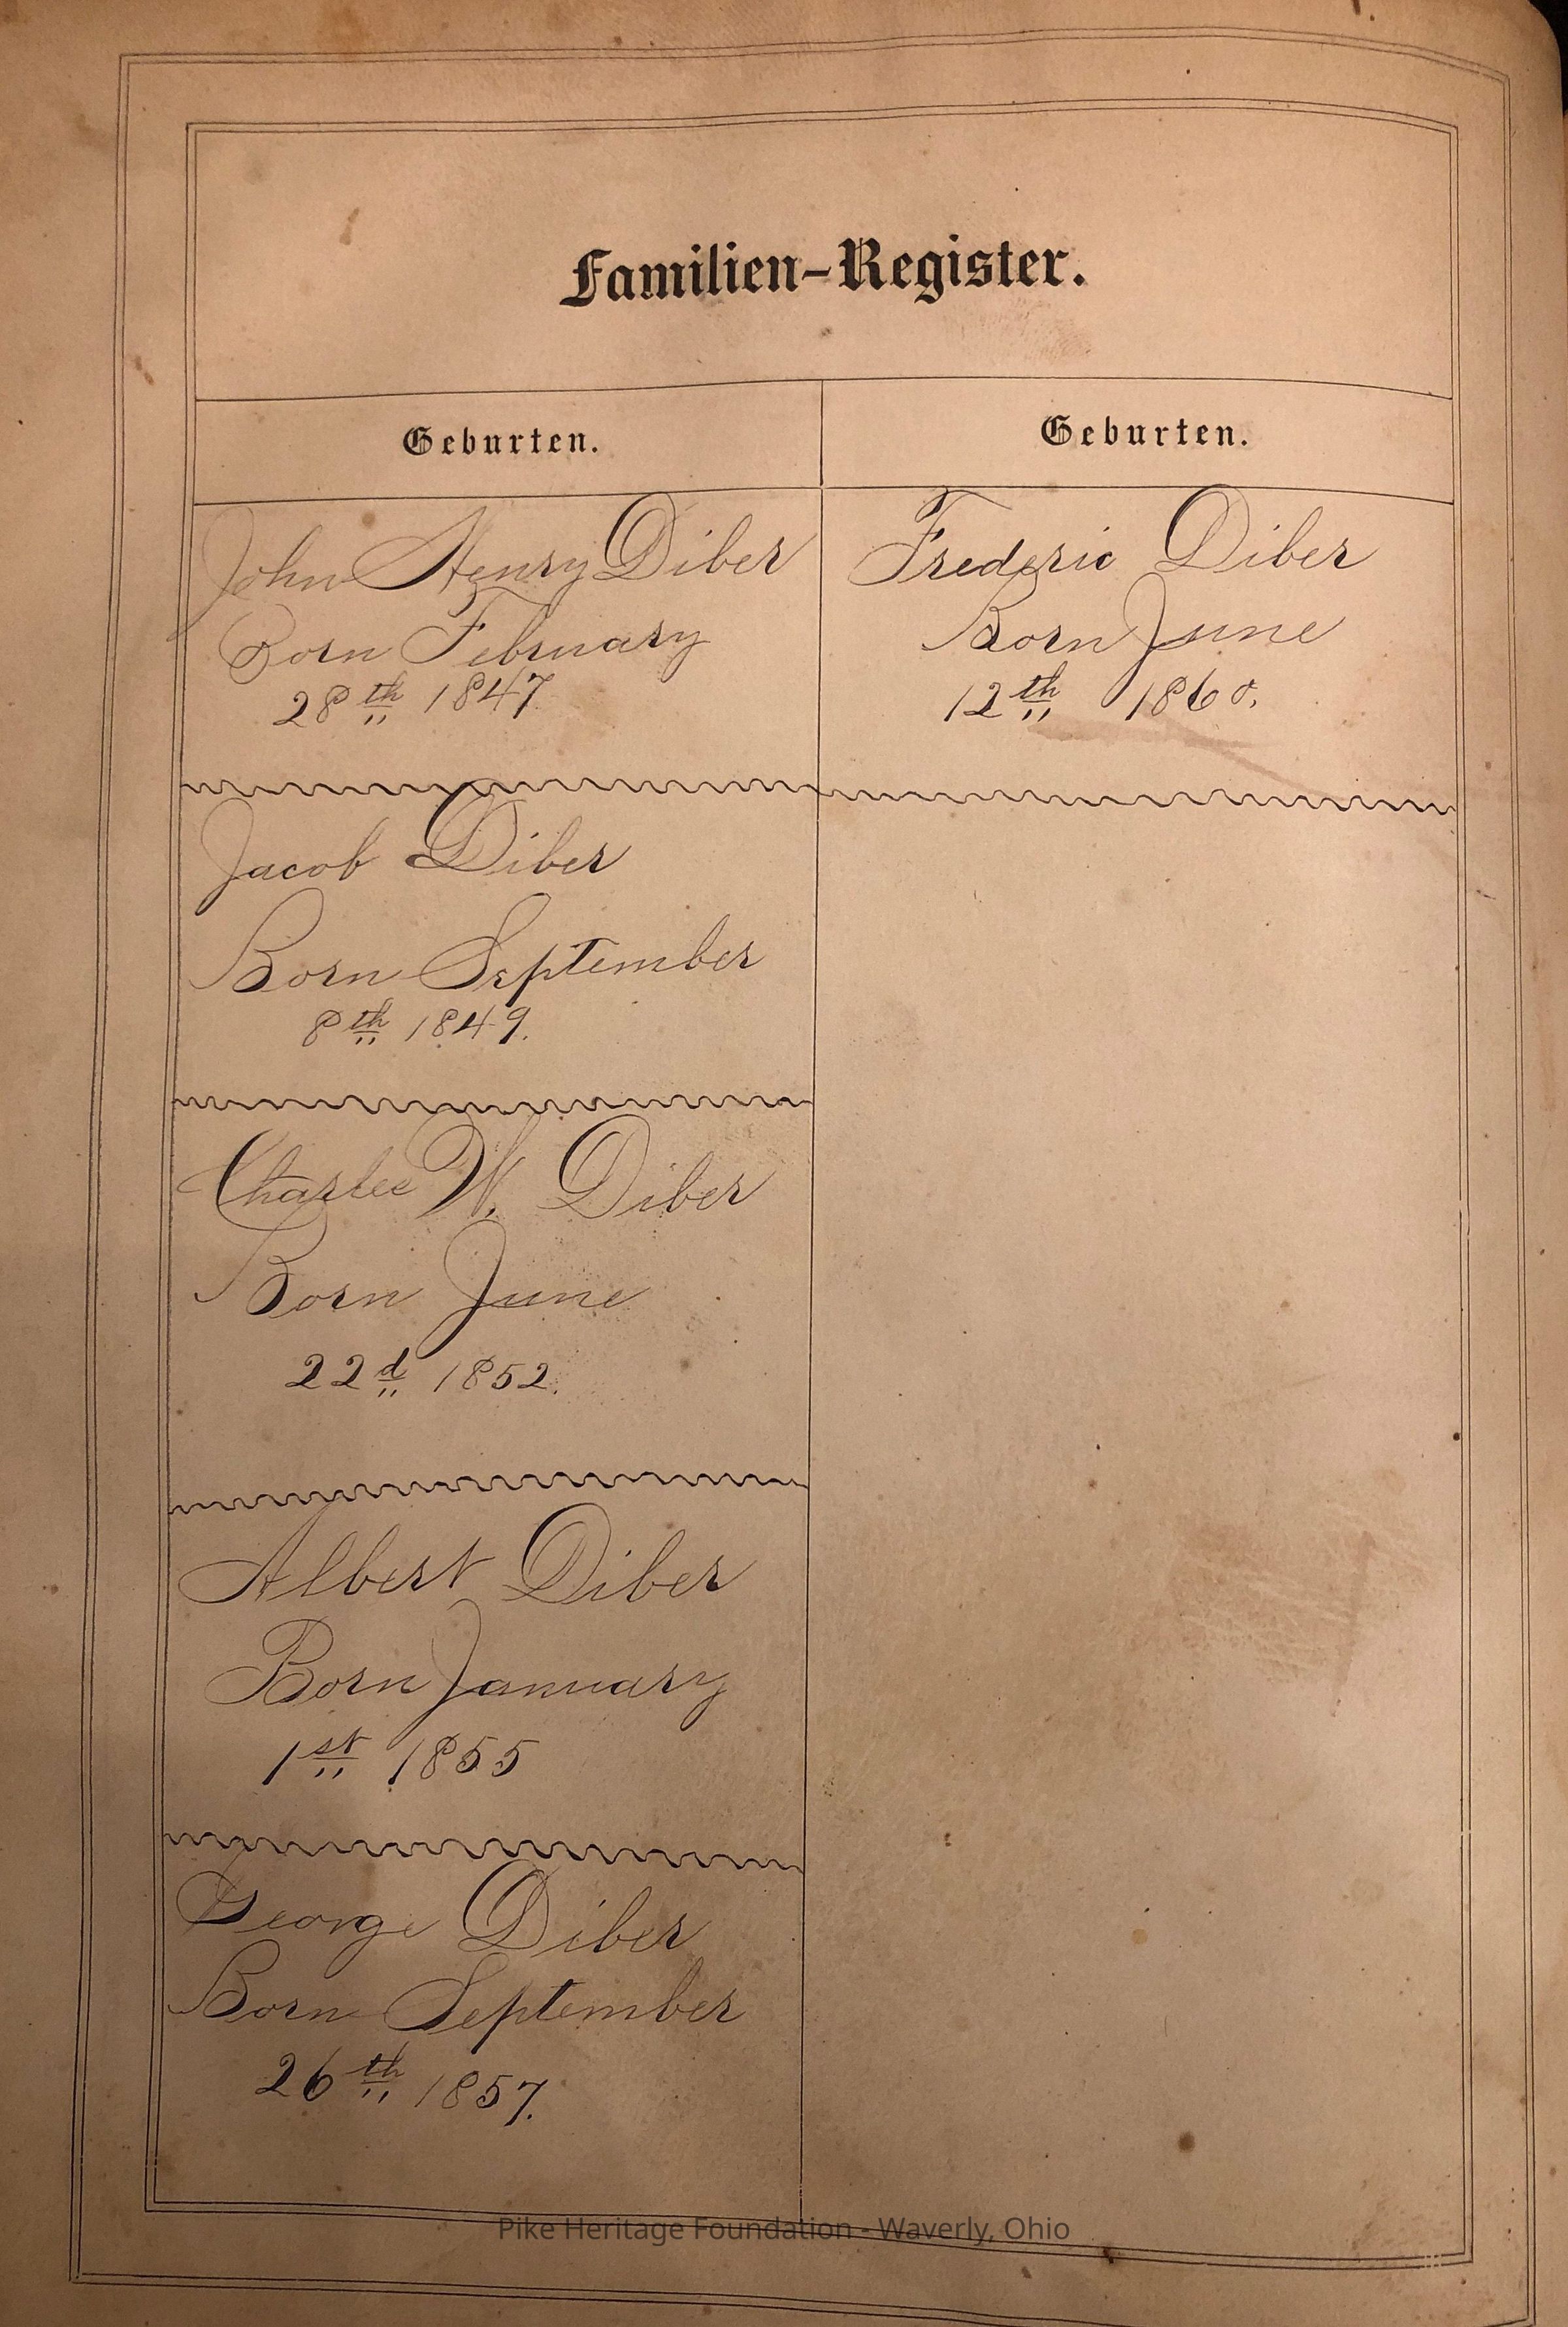 Familien-Register.
Geburten.
John Henry Diber
Born February
28th 1847.
Jacob Diber
Born September
8th 1849.
Charles W. Diber
Born June
22d 1852.
Albert Diber
Born January
1st 1855
George Diber
Born September
26th 1857.
Geburten.
Frederic Diber
Born June
12th 1860.
Pike Heritage Foundation - Waverly, Ohio